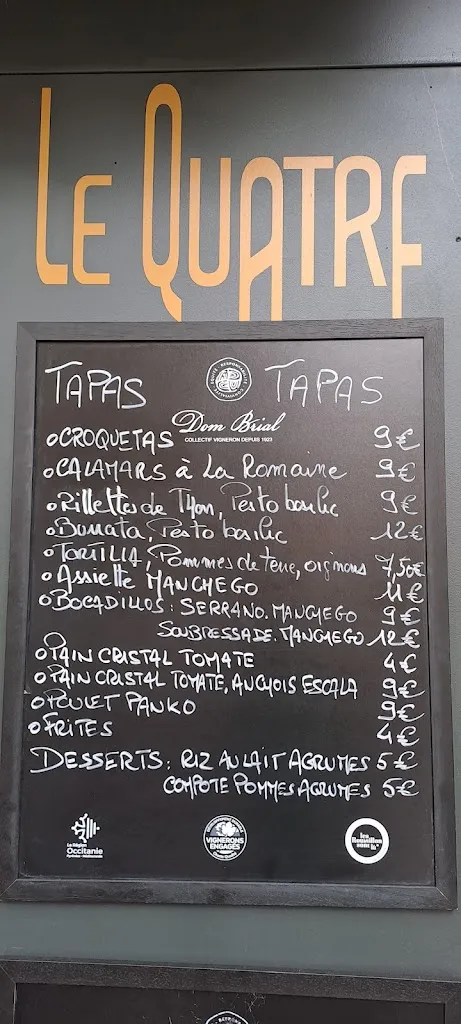 LE QUATRE
TAPAS TAPAS
Dom Brial
COLLECTIF VIGNERON DEPUIS 1923
CROQUETAS 9€
CALAMARS à La Romaine 9€
Rillettes de Thon, Pesto basilic 9€
Burrata, Pesto basilic 12€
TORTILLA, Pommes de terre, oignons 7,50€
Assiette MANCHEGO 11€
BOCADILLOS: SERRANO.MANCHEGO 9€
SOUBRESSADE.MANCHEGO 12€
PAIN CRISTAL TOMATE 4€
PAIN CRISTAL TOMATE, ANCHOIS ESCALA 9€
POULET PANKO 9€
FRITES 4€
DESSERTS: RIZ AU LAIT AGRUMES 5€
COMPOTE POMMES AGRUMES 5€
La Région
Occitanie
Pyrénées - Méditerranée
VIGNERONS
ENGAGÉS